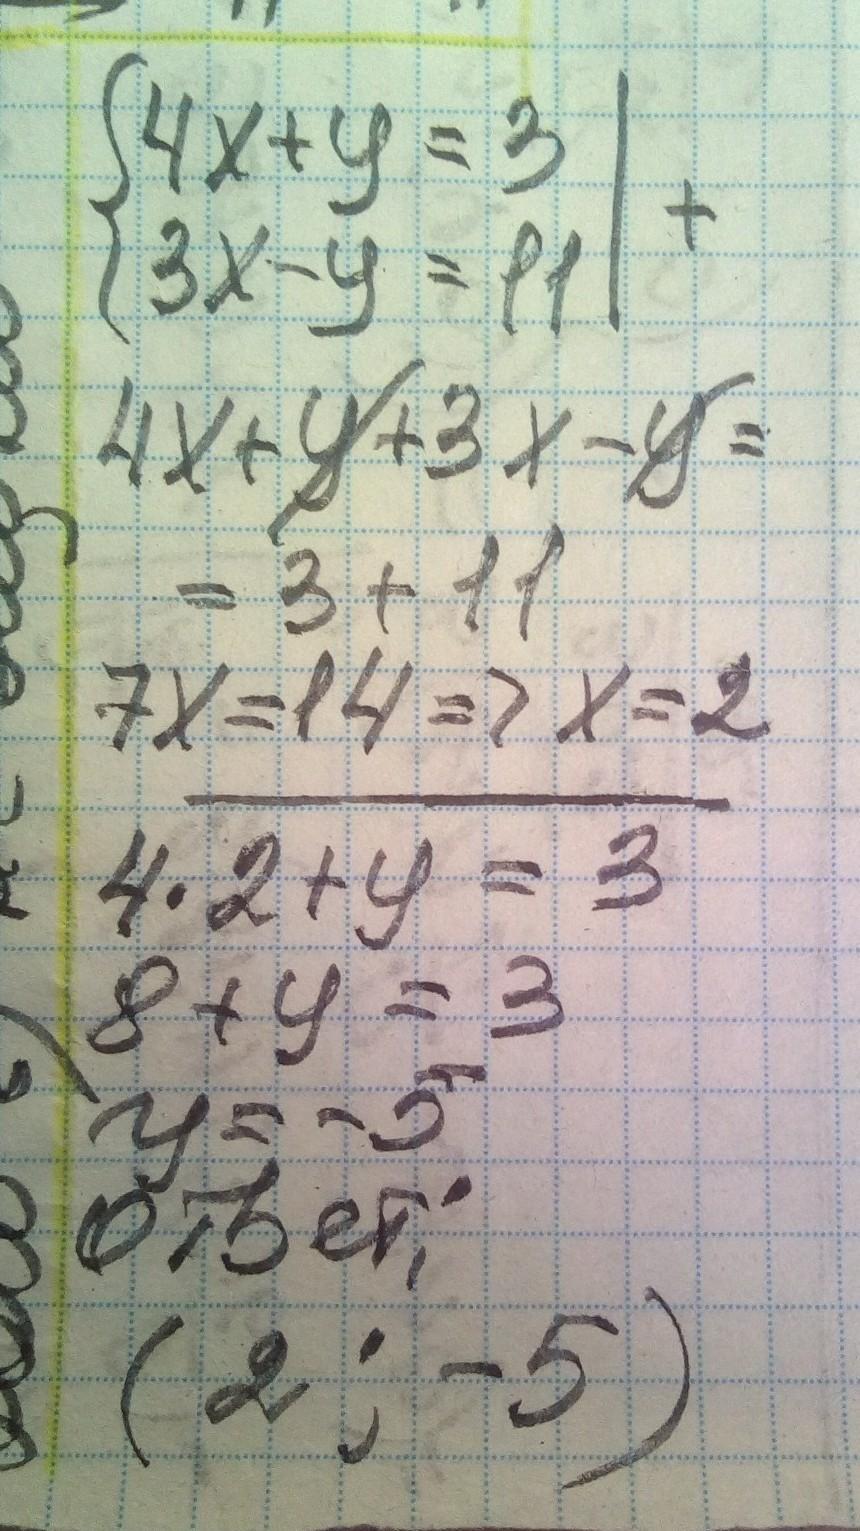 {4x+y=3 | +
{3x-y=11 |
4x+y+3x-y=
=3+11
7x=14=>x=2
4·2+y=3
8+y=3
y=-5
ответ:
(2;-5)